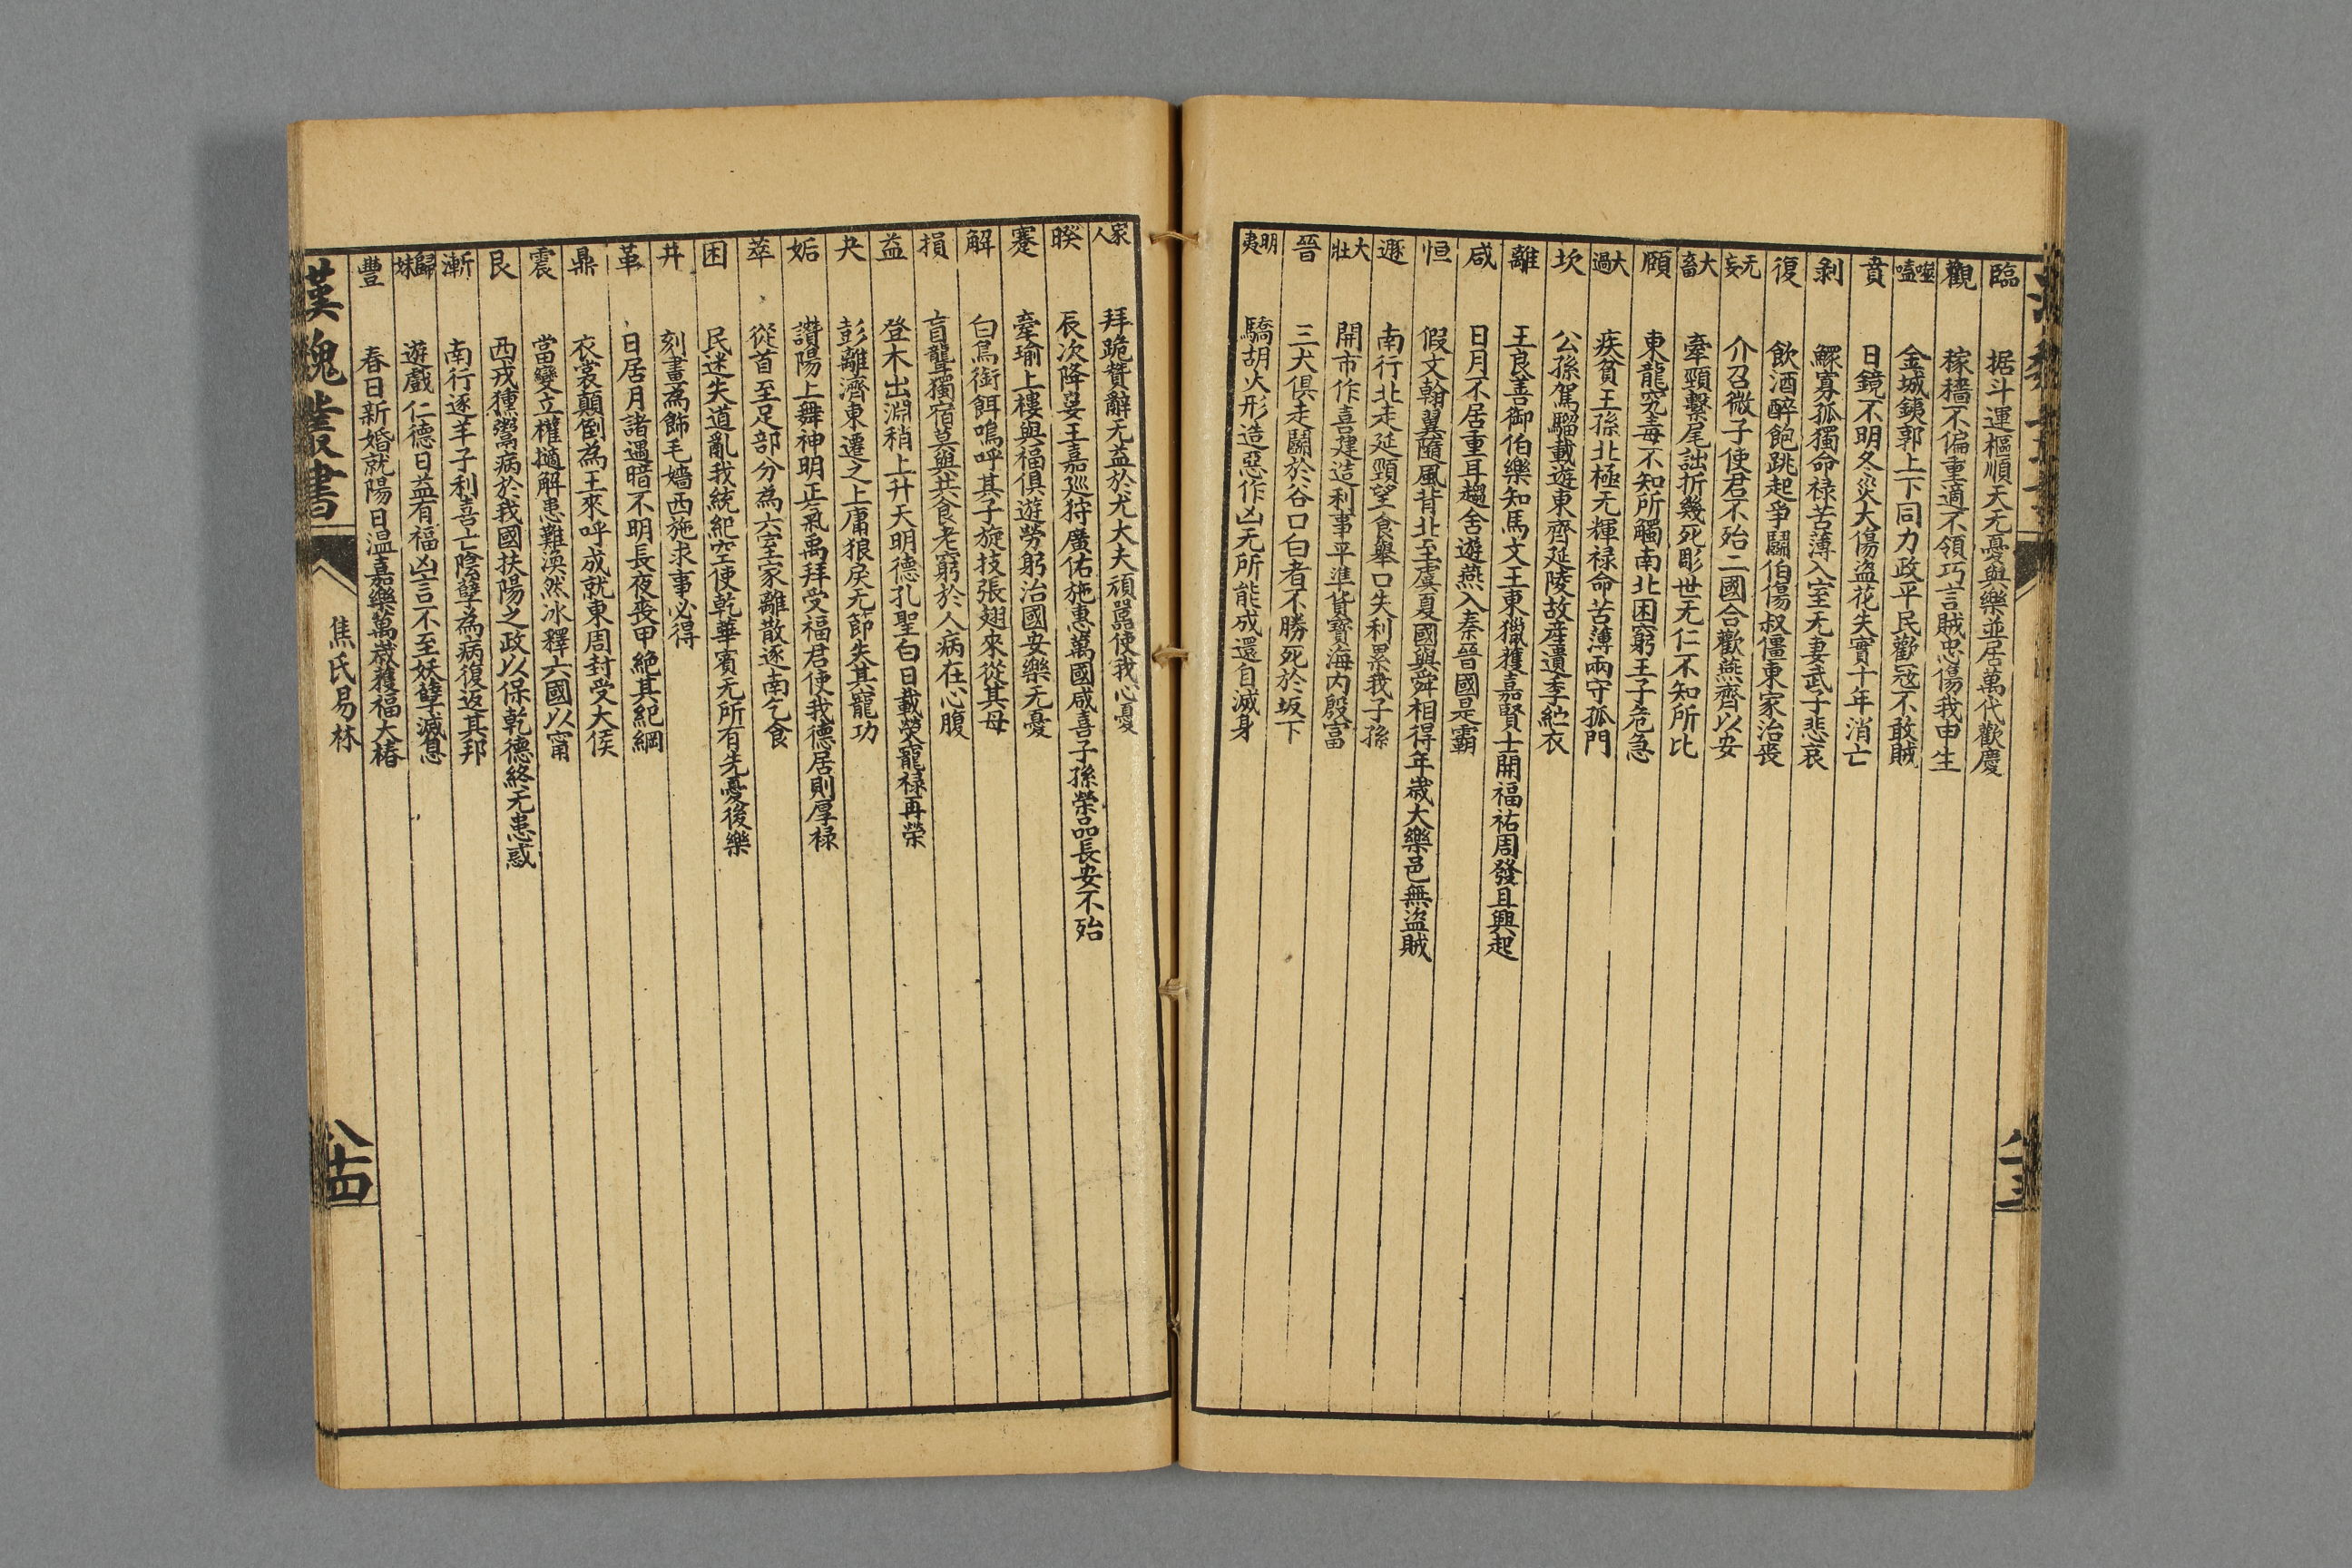 臨 据斗運樞順天无憂與樂並居萬代歡慶
觀 稼穡不偏重適不領巧言賊忠傷我申生
噬嗑 金城鐵郭上下同力政平民歡冦不敢賊
賁 日鏡不明冬災大傷盗花失實十年消亡
剥 鰥寡孤獨命禄苦薄入室无妻武子悲哀
復 飲酒醉飽跳起爭鬭伯傷叔僵東家治喪
无妄 介召微子使君不殆二國合歡燕齊以安
大畜 牽頸繫尾詘折幾死彫世无仁不知所比
頤 東龍宄毒不知所觸南北困窮王子危急
大過 疾貧王孫北極无輝禄命苦薄兩守孤門
坎 公孫駕驑載遊東齊延陵故産遺季紵衣
離 王良善御伯樂知馬文王東獵獲嘉賢士開福祐周發旦興起
咸 日月不居重耳趨舍遊燕入秦晉國是霸
恒 假文翰翼隨風背北至虞夏國與舜相得年歲大樂邑無盗賊
遯 南行北走延頸望食舉口失利累我子孫
大壯 開市作喜建造利事平準貨寶海内殷富
晉 三犬俱走鬭於谷口白者不勝死於坂下
明夷 驕胡火形造惡作凶无所能成還自滅身
家人 拜跪贊辭无益於尤大夫頑嚚使我心憂
睽 辰次降婁王嘉廵狩廣佑施惠萬國咸喜子孫榮品長安不殆
蹇 牽瑜上樓與福俱遊勞躬治國安樂无憂
解 白鳥銜餌嗚呼其子旋技張翅來從其母
損 盲聾獨宿莫與共食老窮於人病在心腹
益 登木出淵稍上升天明德孔聖白日載榮寵禄再榮
夬 彭離濟東遷之上庸狼戾无節失其寵功
姤 讚陽上舞神明正氣禹拜受福君使我德居則厚禄
萃 從首至足部分為六室家離散逐南乞食
困 民迷失道亂我統紀空使乾華賓无所有先憂後樂
井 刻畫為飾毛嬙西施求事必得
革 日居月諸遇暗不明長夜喪甲絶其紀綱
鼎 衣裳顛倒為王來呼成就東周封受大侯
震 當變立權擿解患難渙然冰釋六國以甯
艮 西戎獯鬻病於我國扶陽之政以保乾德終无患惑
漸 南行逐羊子利喜亡陰孽為病復返其邦
歸妹 遊戲仁德日益有福凶言不至妖孽滅息
豐 春日新婚就陽日温嘉樂萬歲獲福大椿
漢魏叢書 焦氏易林 八十四